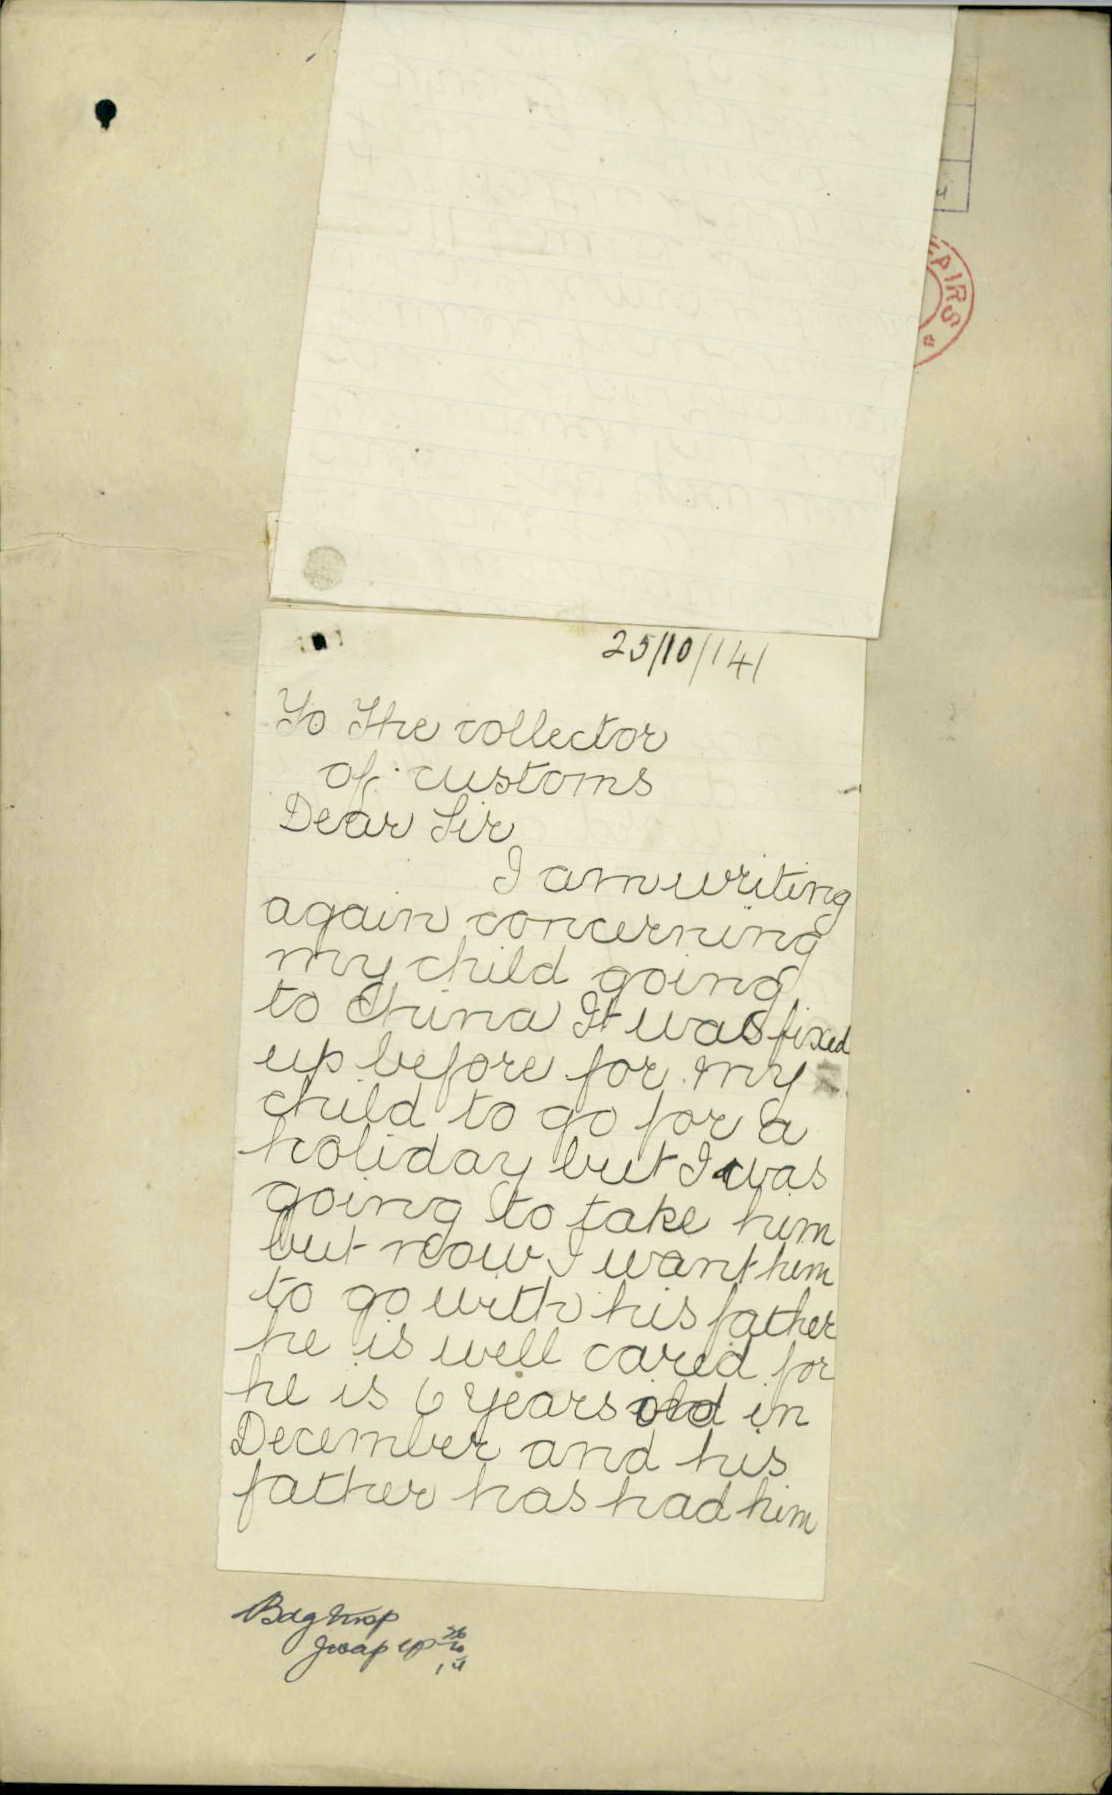 AIRS
25/10/14
To The collector
of customs
Dear Sir
I am writing
again concerning
my child going
to China It was fixed
up before for my
child to go for a
holiday but I was
going to take him
but now I want him
to go with his father
he is well cared for
he is 6 years old in
December and his
father has had him